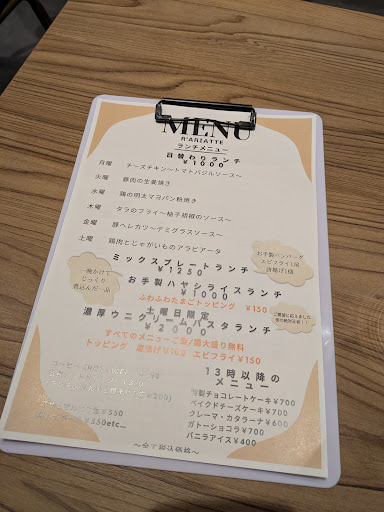 MENU
R'ARIATTE
ランチメニュー
日替わりランチ
¥1000
月曜 チーズチキン〜トマトバジルソース〜
火曜 豚肉の生姜焼き
水曜 鶏の明太マヨパン粉焼き
木曜 タラのフライ〜柚子胡椒のソース〜
金曜 豚ヘレカツ〜デミグラスソース〜
土曜 鶏肉とじゃがいものアラビアータ
ミックスプレートランチ
¥1250
お手製ハンバーグ
エビフライ1尾
唐揚げ1個
お手製ハヤシライスランチ
¥1000
一晩かけて
じっくり
煮込んだ一品
ふわふわたまごトッピング ¥150
土曜日限定
濃厚ウニクリームパスタランチ
¥2000
すべてのメニューご飯/麺大盛り無料
トッピング 唐揚げ¥100 エビフライ¥150
13時以降の
メニュー
特製チョコレートケーキ¥700
ベイクドチーズケーキ¥700
クレーマ・カタラーナ¥600
ガトーショコラ¥700
バニラアイス¥400
¥550
¥550etc…
〜全て税込価格〜